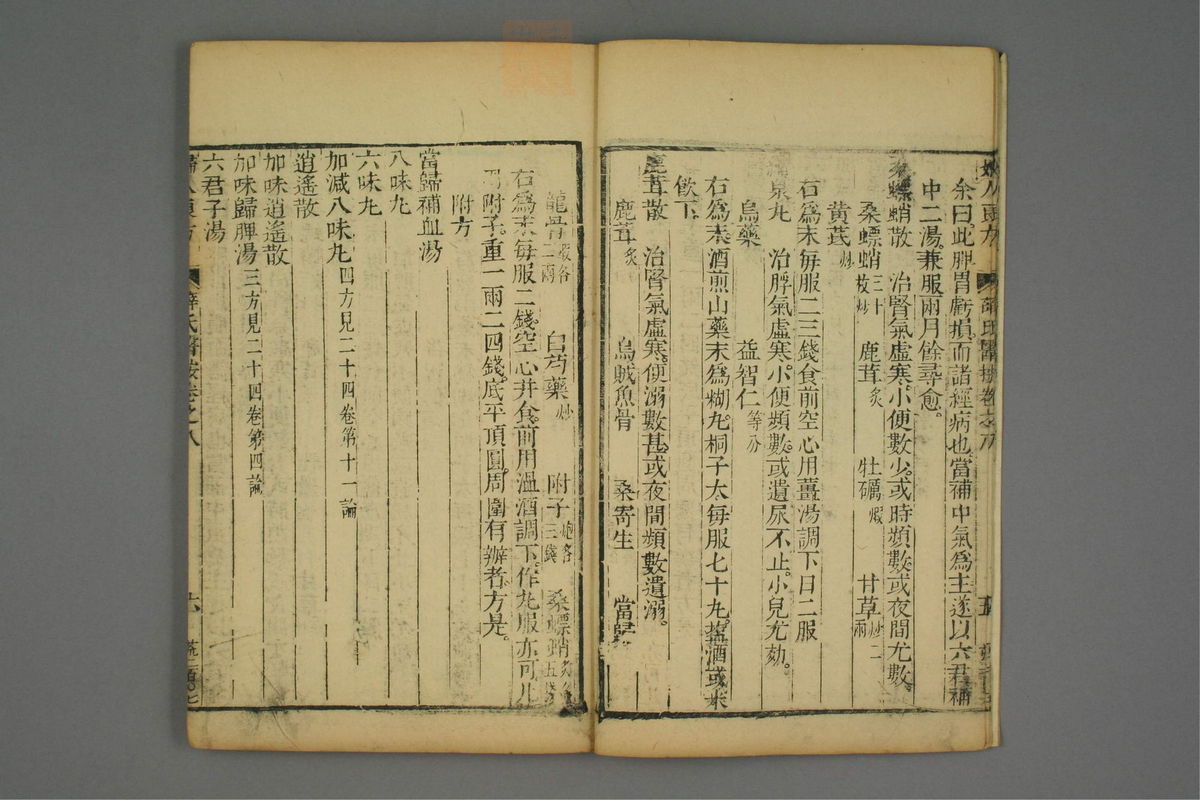 余曰此脾胃虧損而諸經病也當補中氣爲主遂以六君補
中二湯兼服兩月餘尋愈
桑螵蛸散　治腎氣虛寒小便數少或時頻數或夜間尤數
桑螵蛸三十枚炒　鹿茸炙　牡礪煅　甘草炒二兩
黃芪炒
右爲末每服二三錢食前空心用薑湯調下日二服
泉丸　治脬氣虛寒小便頻數或遺尿不止小兒尤効
烏藥　益智仁等分
右爲末酒煎山藥末爲糊丸桐子大每服七十丸鹽酒或米
飲下
鹿茸散　治腎氣虛寒便溺數甚或夜間頻數遺溺
鹿茸炙　烏賊魚骨　桑寄生　當歸
龍骨煅各二兩　白芍藥炒　附子炮各三錢　桑螵蛸炙五錢
右爲末每服二錢空心并食前用溫酒調下作丸服亦可凡
用附子重一兩二四錢底平頂圓周圍有辦者方是
附方
當歸補血湯
八味丸
六味丸
加減八味丸四方見二十四卷第十一論
逍遙散
加味逍遙散
加味歸脾湯三方見二十四卷第四論
六君子湯
薛氏醫按卷之八